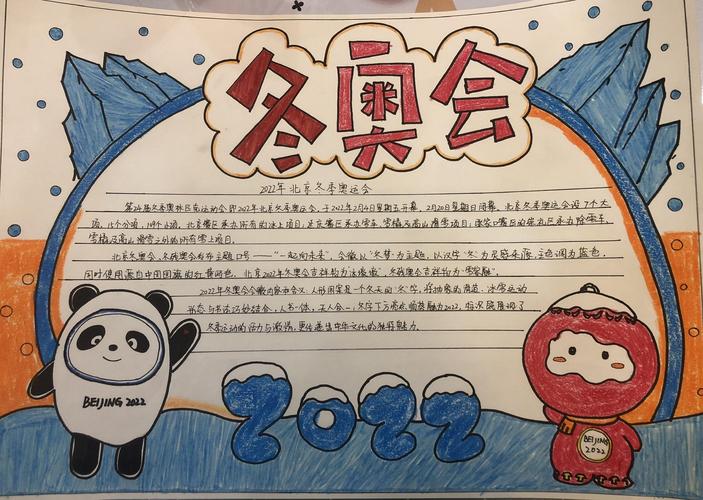 冬奥会
2022年北京冬季奥运会
第24届冬季奥林匹克运动会即2022年北京冬季奥运会,于2022年2月4日星期五开幕,2月20日星期日闭幕。北京冬季奥运会设7个大
项,15个分项,109个小项。北京赛区承办所有的冰上项目,延庆赛区承办雪车、雪橇及高山滑雪项目;张家口赛区的崇礼区承办除雪车、
雪橇及高山滑雪之外的所有雪上项目。
北京冬奥会、冬残奥会发布主题口号——“一起向未来”,会徽以“冬梦”为主题,以汉字“冬”为灵感来源,主色调为蓝色,
同时使用源自中国国旗的红黄两色。北京2022年冬奥会吉祥物为“冰墩墩”,冬残奥会吉祥物为“雪容融”。
2022年冬奥会会徽内容和含义:人形图案是一个冬天的“冬”字,
形态与书法巧妙结合,人书一体,天人合一,“冬”字下方
冬季运动的活力与激情,更传递出中华文化的独特魅力。
BEIJING 2022
2022
BEIJING
2022